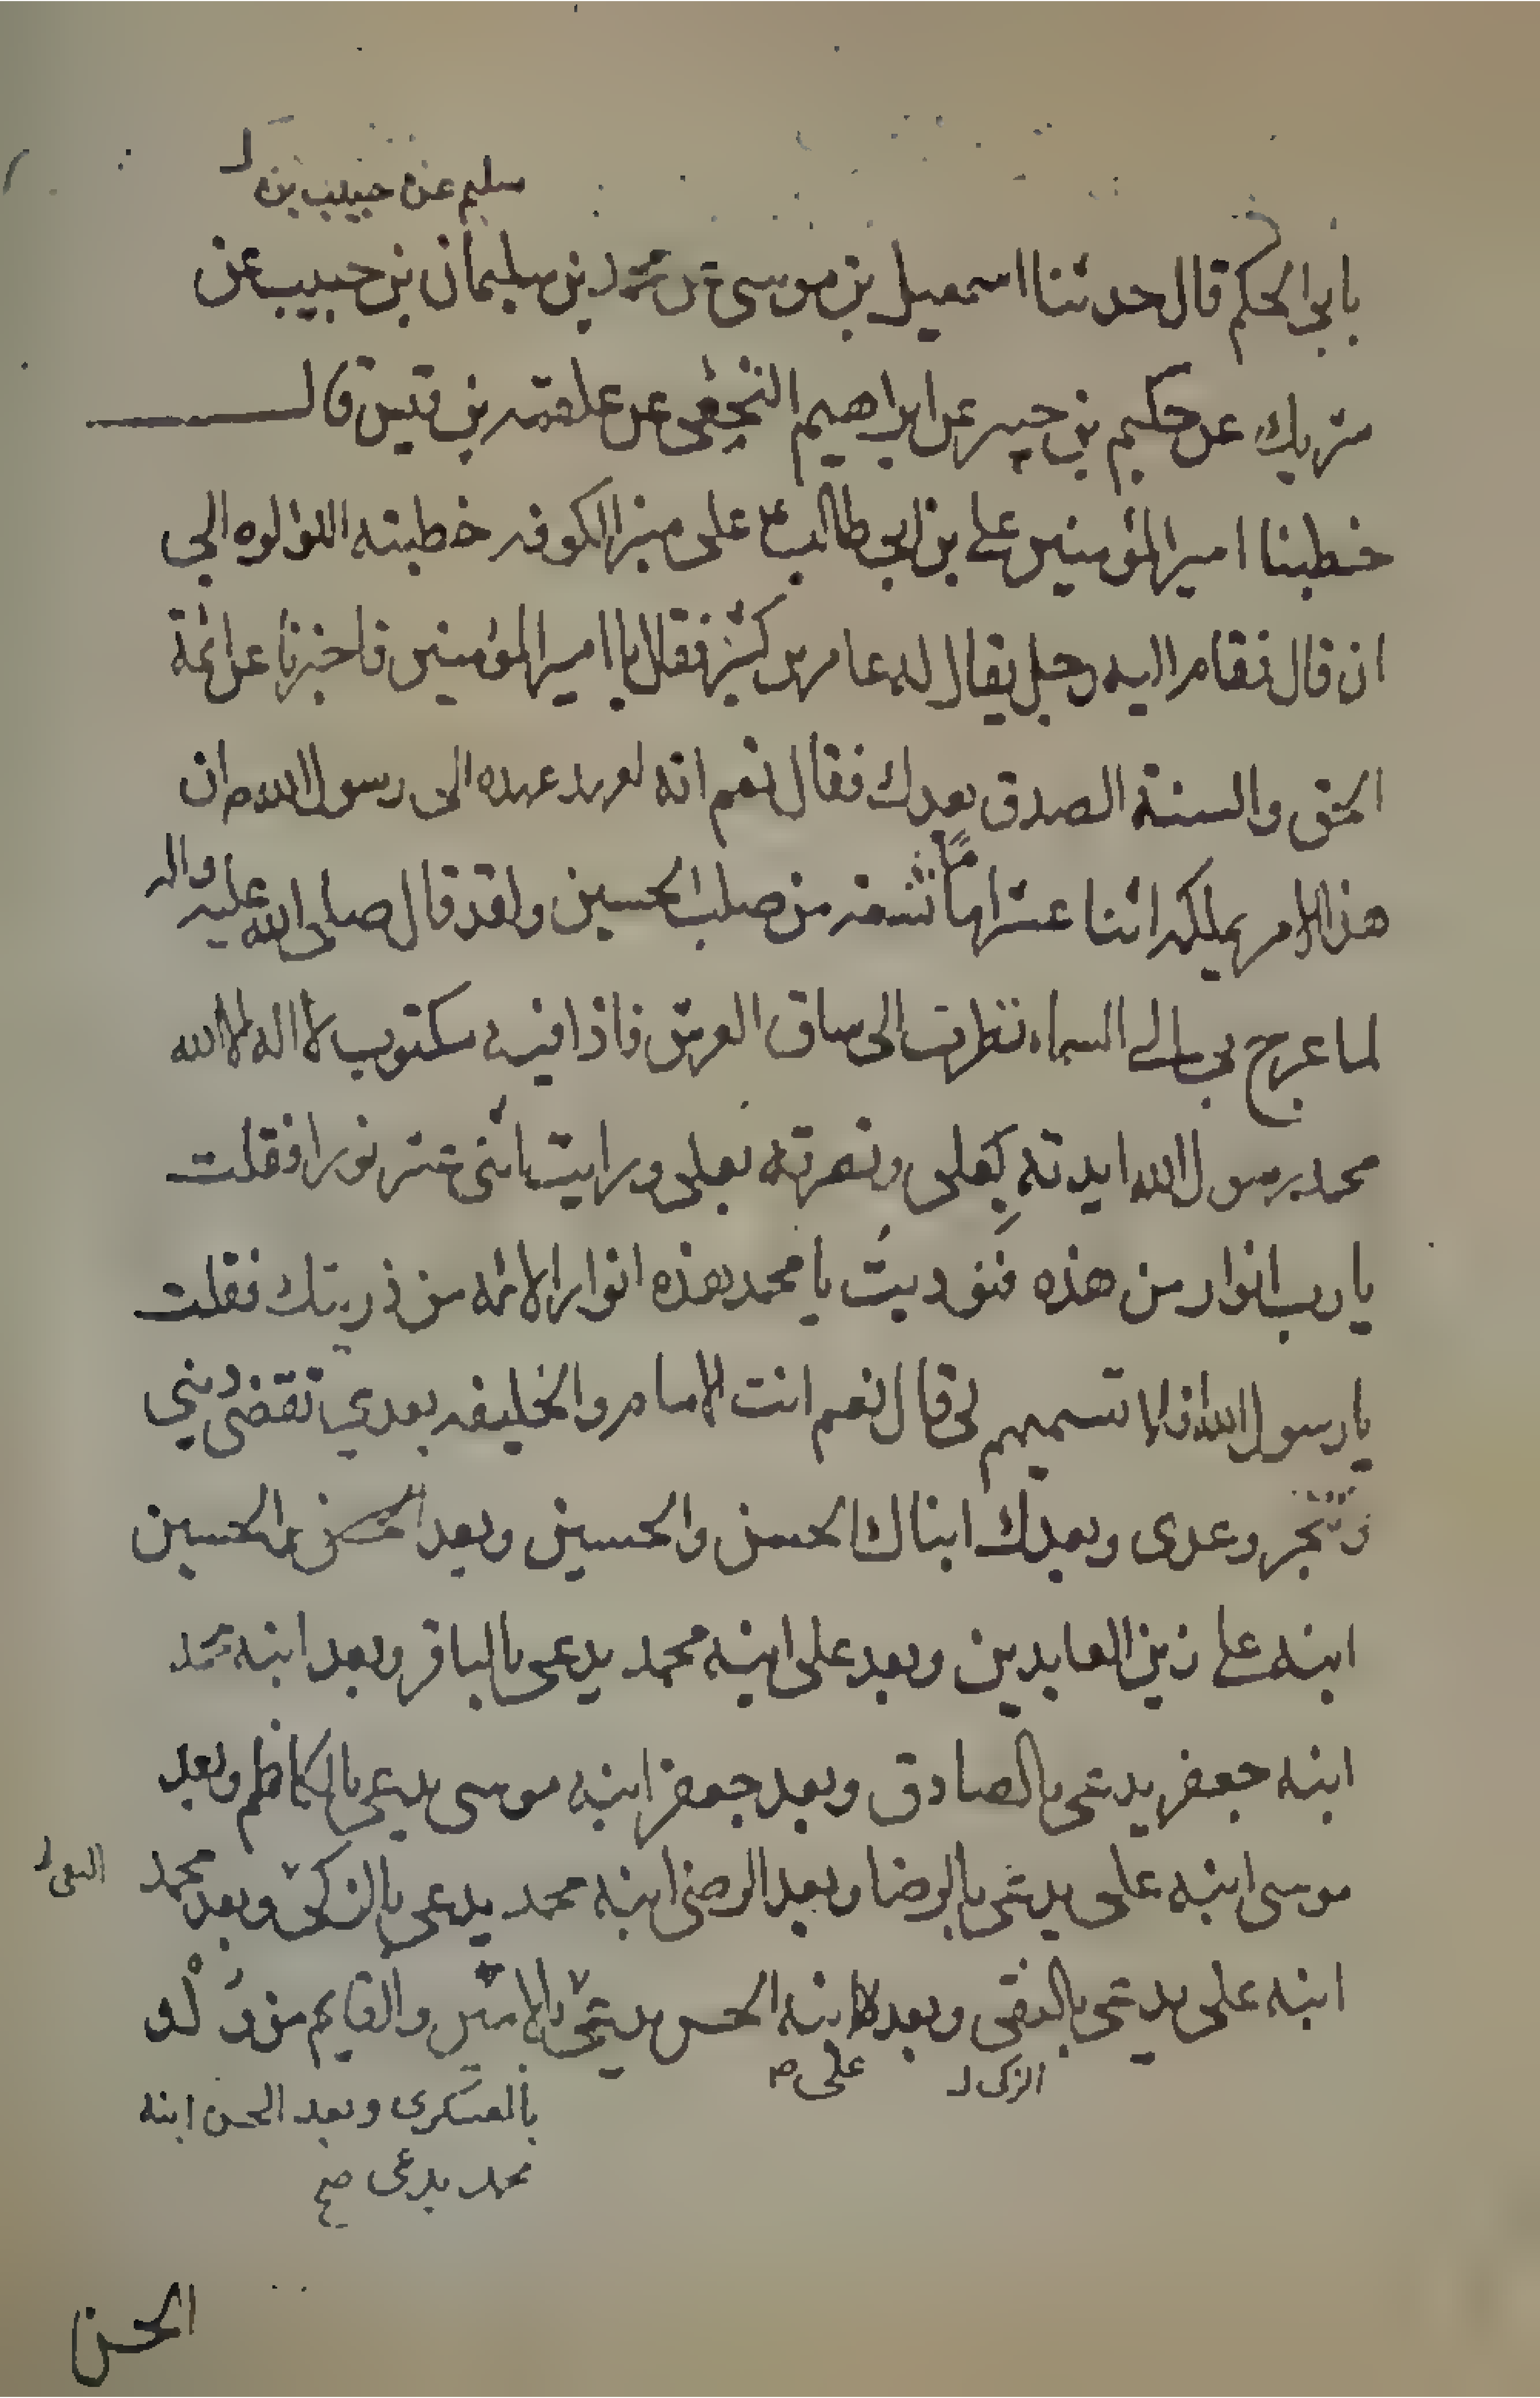 سليم عن حبيب بن
بابى الحكم قال حدثنا اسمعيل بن موسى بن محمد بن سليمان بن حبيب عن
شريك عن حكيم بن جبير عن ابراهيم النخعى عن علقمه بن قيس قال
خطبنا امير المؤمنين على بن ابى طالب ع على منبر الكوفه خطبته اللولوه الى
ان قال فقام اليه رجل يقال له عامر بن كثير فقال يا امير المؤمنين فاخبرنا عن ائمة
الحق والسنة الصدق بعدك فقال نعم انه لعهد عهده الى رسول الله ص ان
هذا الامر يملكه اثنا عشر اماما تسعه من صلب الحسين ولقد قال صلى الله عليه واله
لما عرج بى الى السماء نظرت الى ساق العرش فاذا فيه مكتوب لا اله الا الله
محمد رسول الله ايدته بعلى ونصرته بعلى ورايت اثنى عشر نورا فقلت
يا رب انوار من هذه فنوديت يا محمد هذه انوار الائمه من ذريتك فقلت
يا رسول الله افلا تسميهم لى قال نعم انت الامام والخليفه بعدي تقضى دينى
وتنجز وعدى وبعدك ابناك الحسن والحسين وبعد الحسين
ابنه على زين العابدين وبعد على ابنه محمد يدعى بالباقر وبعد ابنه محمد
ابنه جعفر يدعى بالصادق وبعد جعفر ابنه موسى يدعى بالكاظم وبعد
موسى ابنه على يدعى بالرضا وبعد الرضى ابنه محمد يدعى بالزكى وبعد محمد
ابنه على يدعى بالنقى وبعده ابنه الحسن يدعى بالامين والقايم من ولد
الزكى على
بالعسكرى وبعد الحسن ابنه
محمد يدعى صح
الحسن